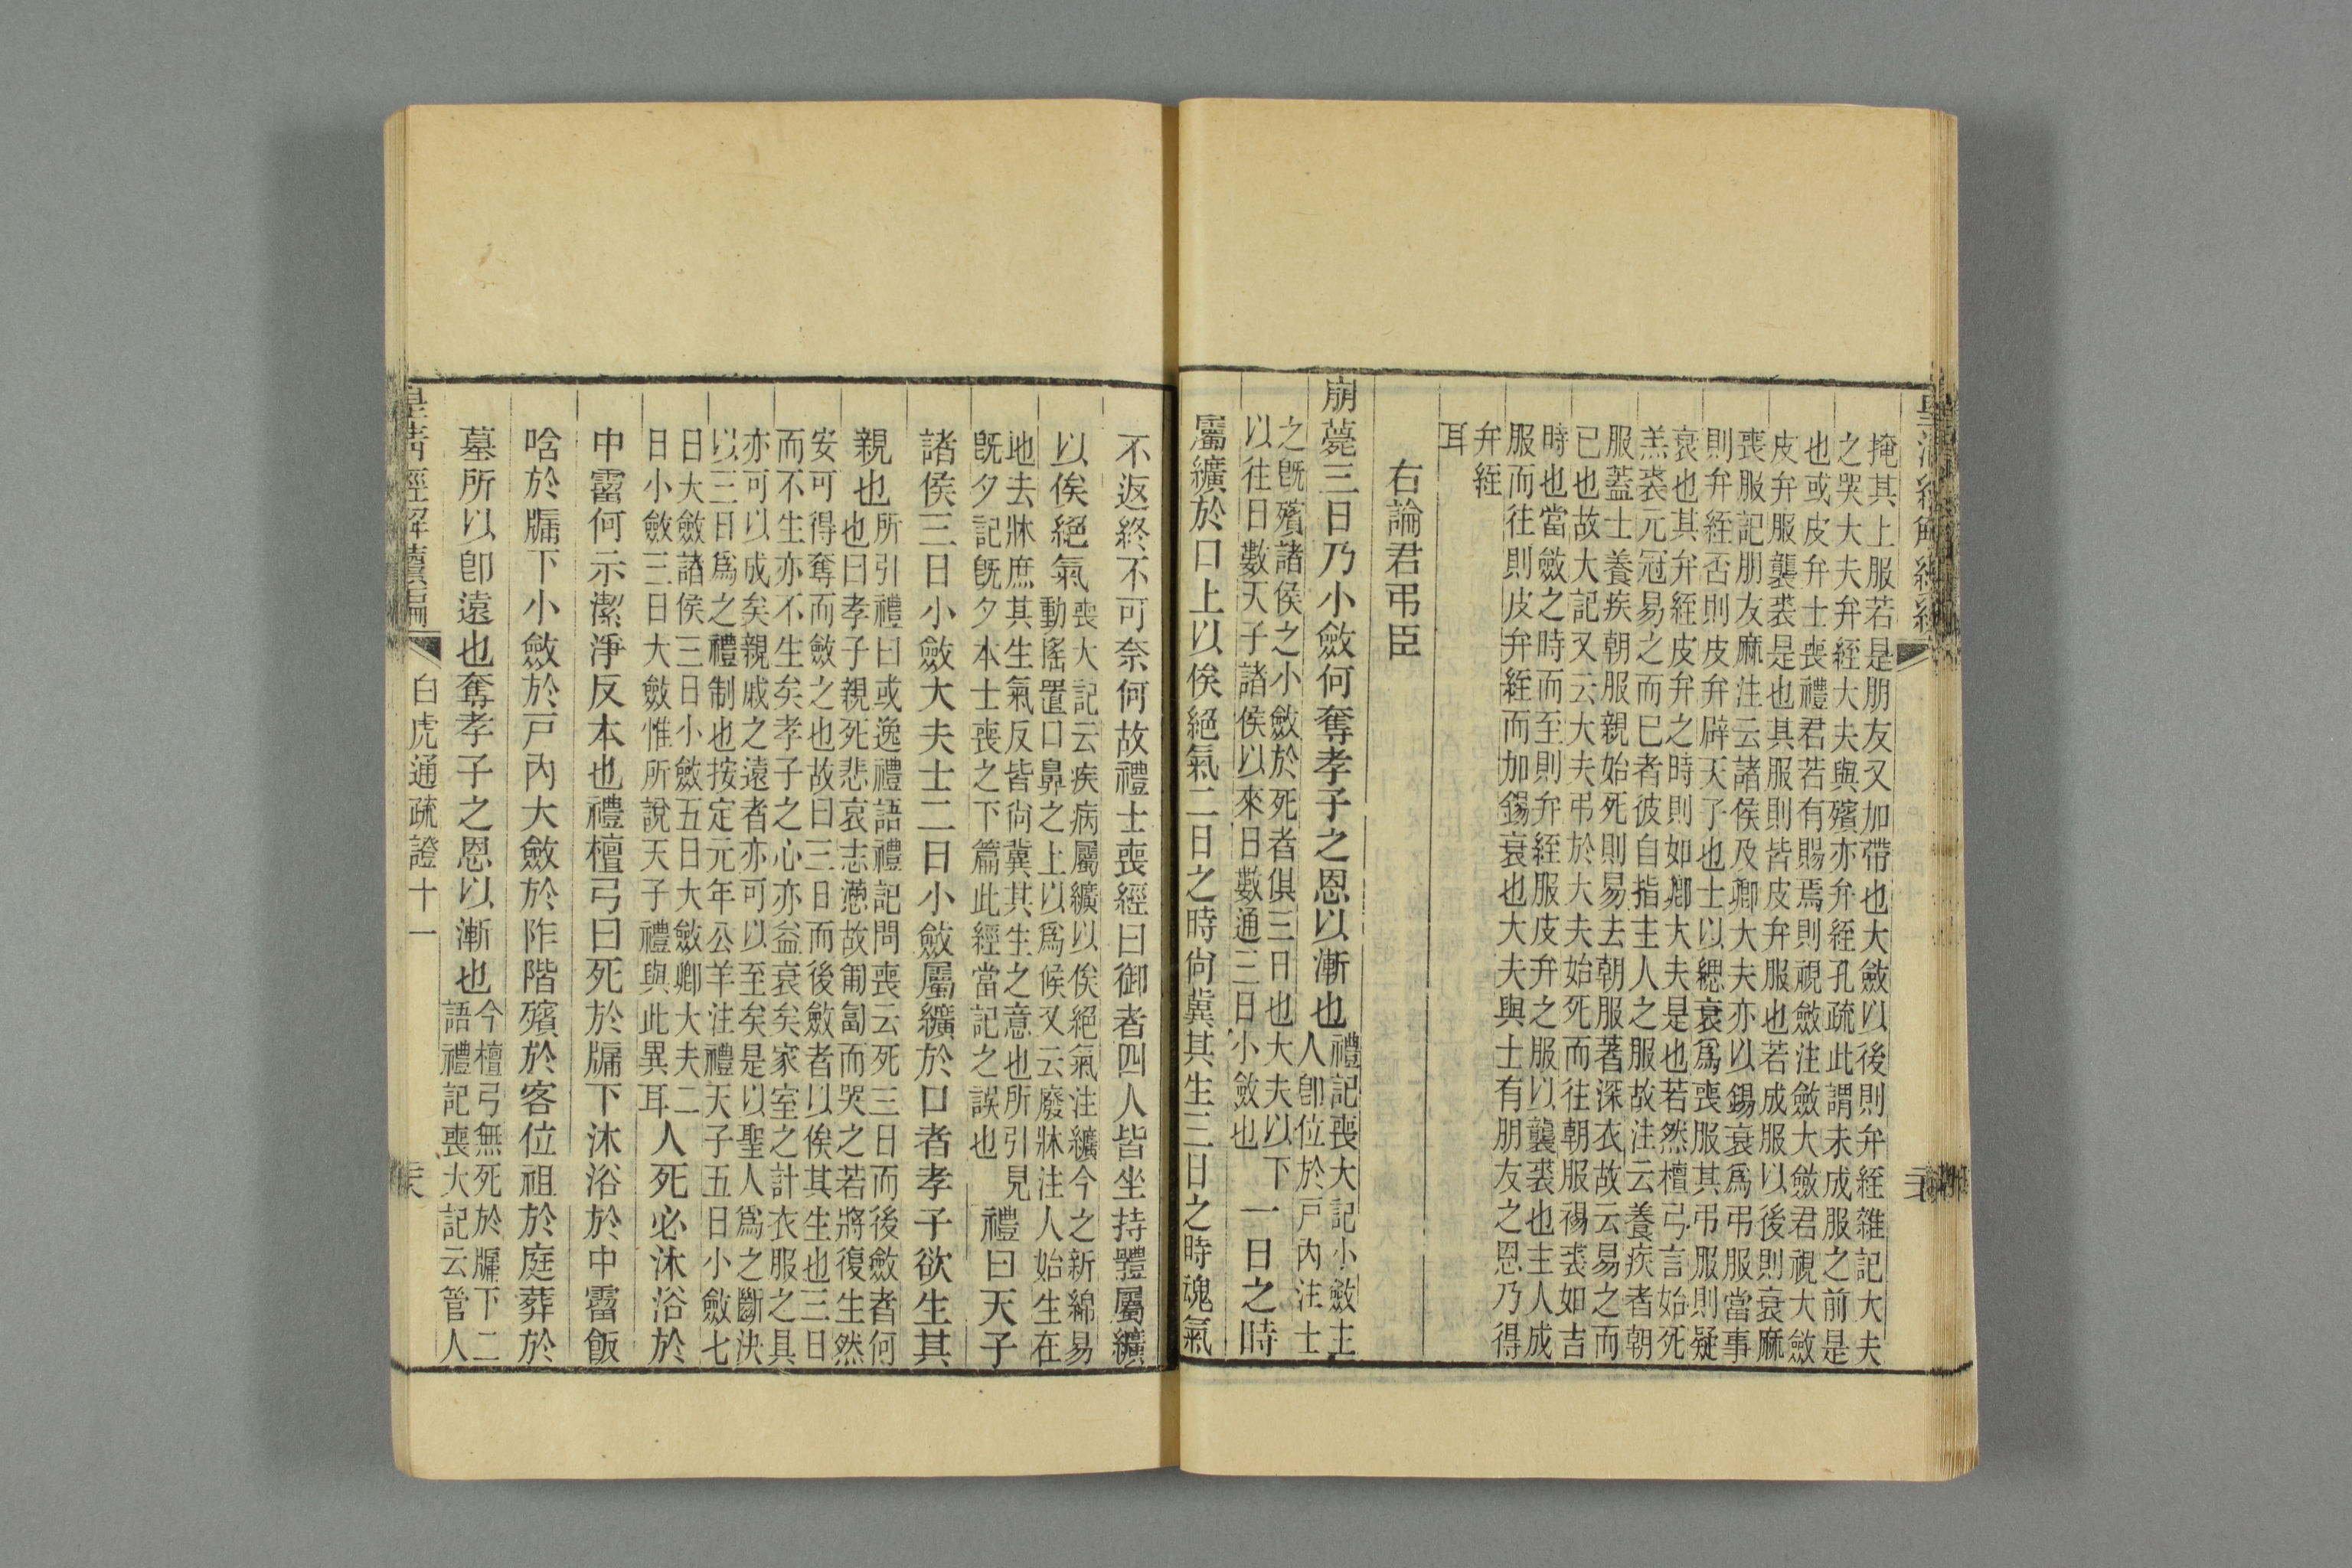 掩其上服若是朋友又加帶也大斂以後則弁絰雜記大夫
之哭大夫弁絰大夫與殯亦弁絰孔疏此謂未成服之前是
也或皮弁士喪禮君若有賜焉則視斂注斂大斂君視大斂
皮弁服襲裘是也其服則皆皮弁服也若成服以後則衰麻
喪服記朋友麻注云諸侯及卿大夫亦以錫衰爲弔服當事
則弁絰否則皮弁辟天子也士以緦衰爲喪服其弔服則疑
衰也其弁絰皮弁之時則如卿大夫是也若然檀弓言始死
羔裘元冠易之而已者彼自指主人之服故注云養疾者朝
服蓋士養疾朝服親始死則易去朝服著深衣故云易之而
已也故大記又云大夫弔於大夫始死而往朝服裼裘如吉
時也當斂之時而至則弁絰服皮弁之服以襲裘也主人成
服而往則皮弁絰而加錫衰也大夫與士有朋友之恩乃得
弁絰
耳
右論君弔臣
崩薨三日乃小斂何奪孝子之恩以漸也禮記喪大記小斂主
人卽位於戸內注士
之旣殯諸侯之小斂於死者俱三日也大夫以下
以往日數天子諸侯以來日數通三日小斂也一日之時
屬纊於口上以俟絕氣二日之時尙冀其生三日之時魂氣
不返終不可奈何故禮士喪經曰御者四人皆坐持體屬纊
以俟絕氣喪大記云疾病屬纊以俟絕氣注纊今之新綿易
動搖置口鼻之上以爲候又云廢牀注人始生在
地去牀庶其生氣反皆尙冀其生之意也所引見
旣夕記旣夕本士喪之下篇此經當記之誤也禮曰天子
諸侯三日小斂大夫士二日小斂屬纊於口者孝子欲生其
親也所引禮曰或逸禮語禮記問喪云死三日而後斂者何
也曰孝子親死悲哀志懣故匍匐而哭之若將復生然
安可得奪而斂之也故曰三日而後斂者以俟其生也三日
而不生亦不生矣孝子之心亦益衰矣家室之計衣服之具
亦可以成矣親戚之遠者亦可以至矣是以聖人爲之斷決
以三日爲之禮制也按定元年公羊注禮天子五日小斂七
日大斂諸侯三日小斂五日大斂卿大夫二
日小斂三日大斂惟所說天子禮與此異耳人死必沐浴於
中霤何示潔淨反本也禮檀弓曰死於牖下沐浴於中霤飯
唅於牖下小斂於戸內大斂於阼階殯於客位祖於庭葬於
墓所以卽遠也奪孝子之恩以漸也今檀弓無死於牖下二
語禮記喪大記云管人
皇淸經解續編
白虎通疏證十一